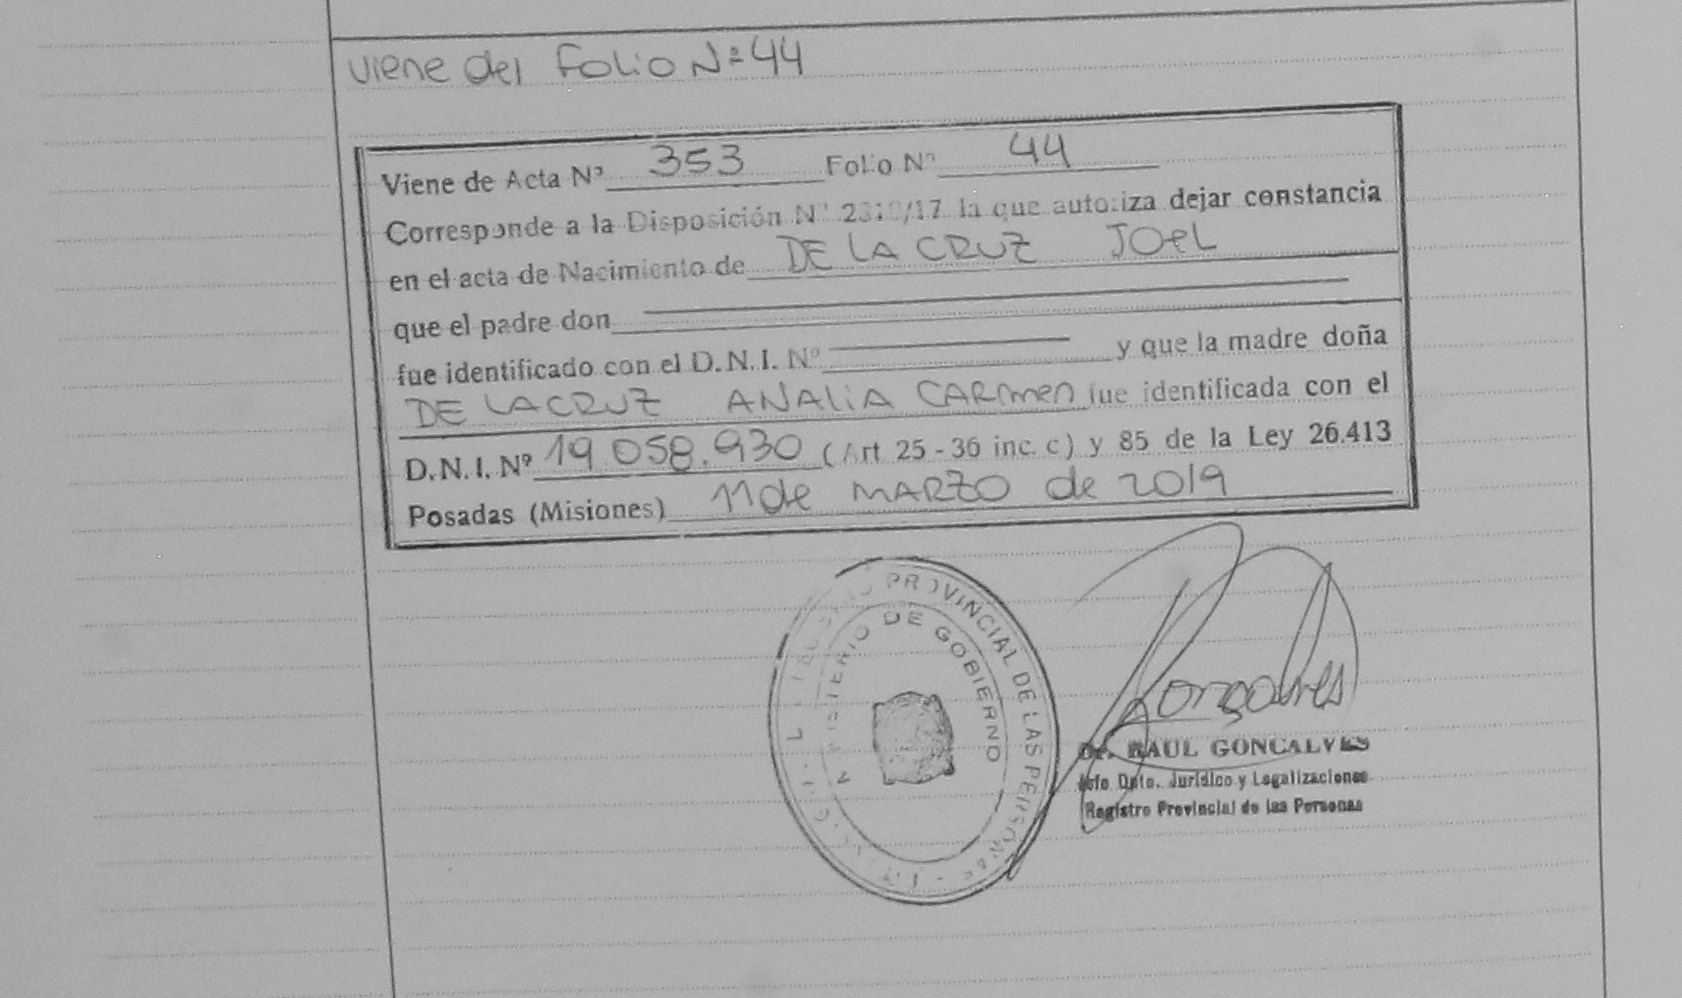 Viene del Folio Nº 44
Viene de Acta Nº 353 Folio Nº 44
Corresponde a la Disposición Nº /17 la que autoriza dejar constancia
en el acta de Nacimiento de DE LA CRUZ JOEL
que el padre don
fue identificado con el D.N.I. Nº y que la madre doña
DE LA CRUZ ANALIA CARMEN fue identificada con el
D.N.I. Nº 19.058.930 (Art 25 - 36 inc. c) y 85 de la Ley 26.413
Posadas (Misiones) 11 de MARZO de 2019
PROVINCIAL DE LAS PERSONAS
MINISTERIO DE GOBIERNO
Goncalves
Dr. RAUL GONCALVES
Jefe Dpto. Jurídico y Legalizaciones
Registro Provincial de las Personas